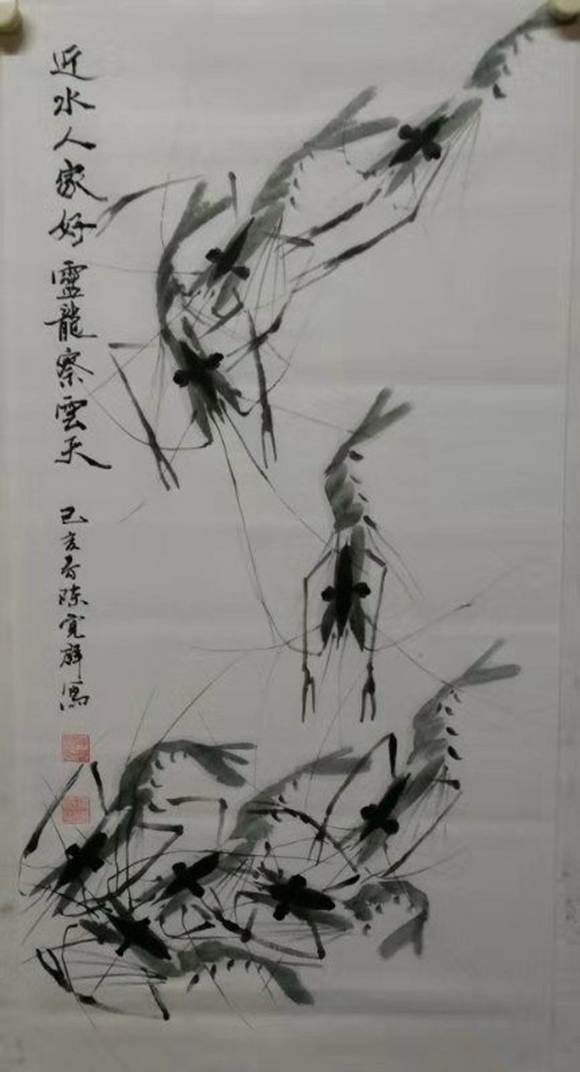 近水人家好靈龍察雲天
己亥春陈寛辟寫